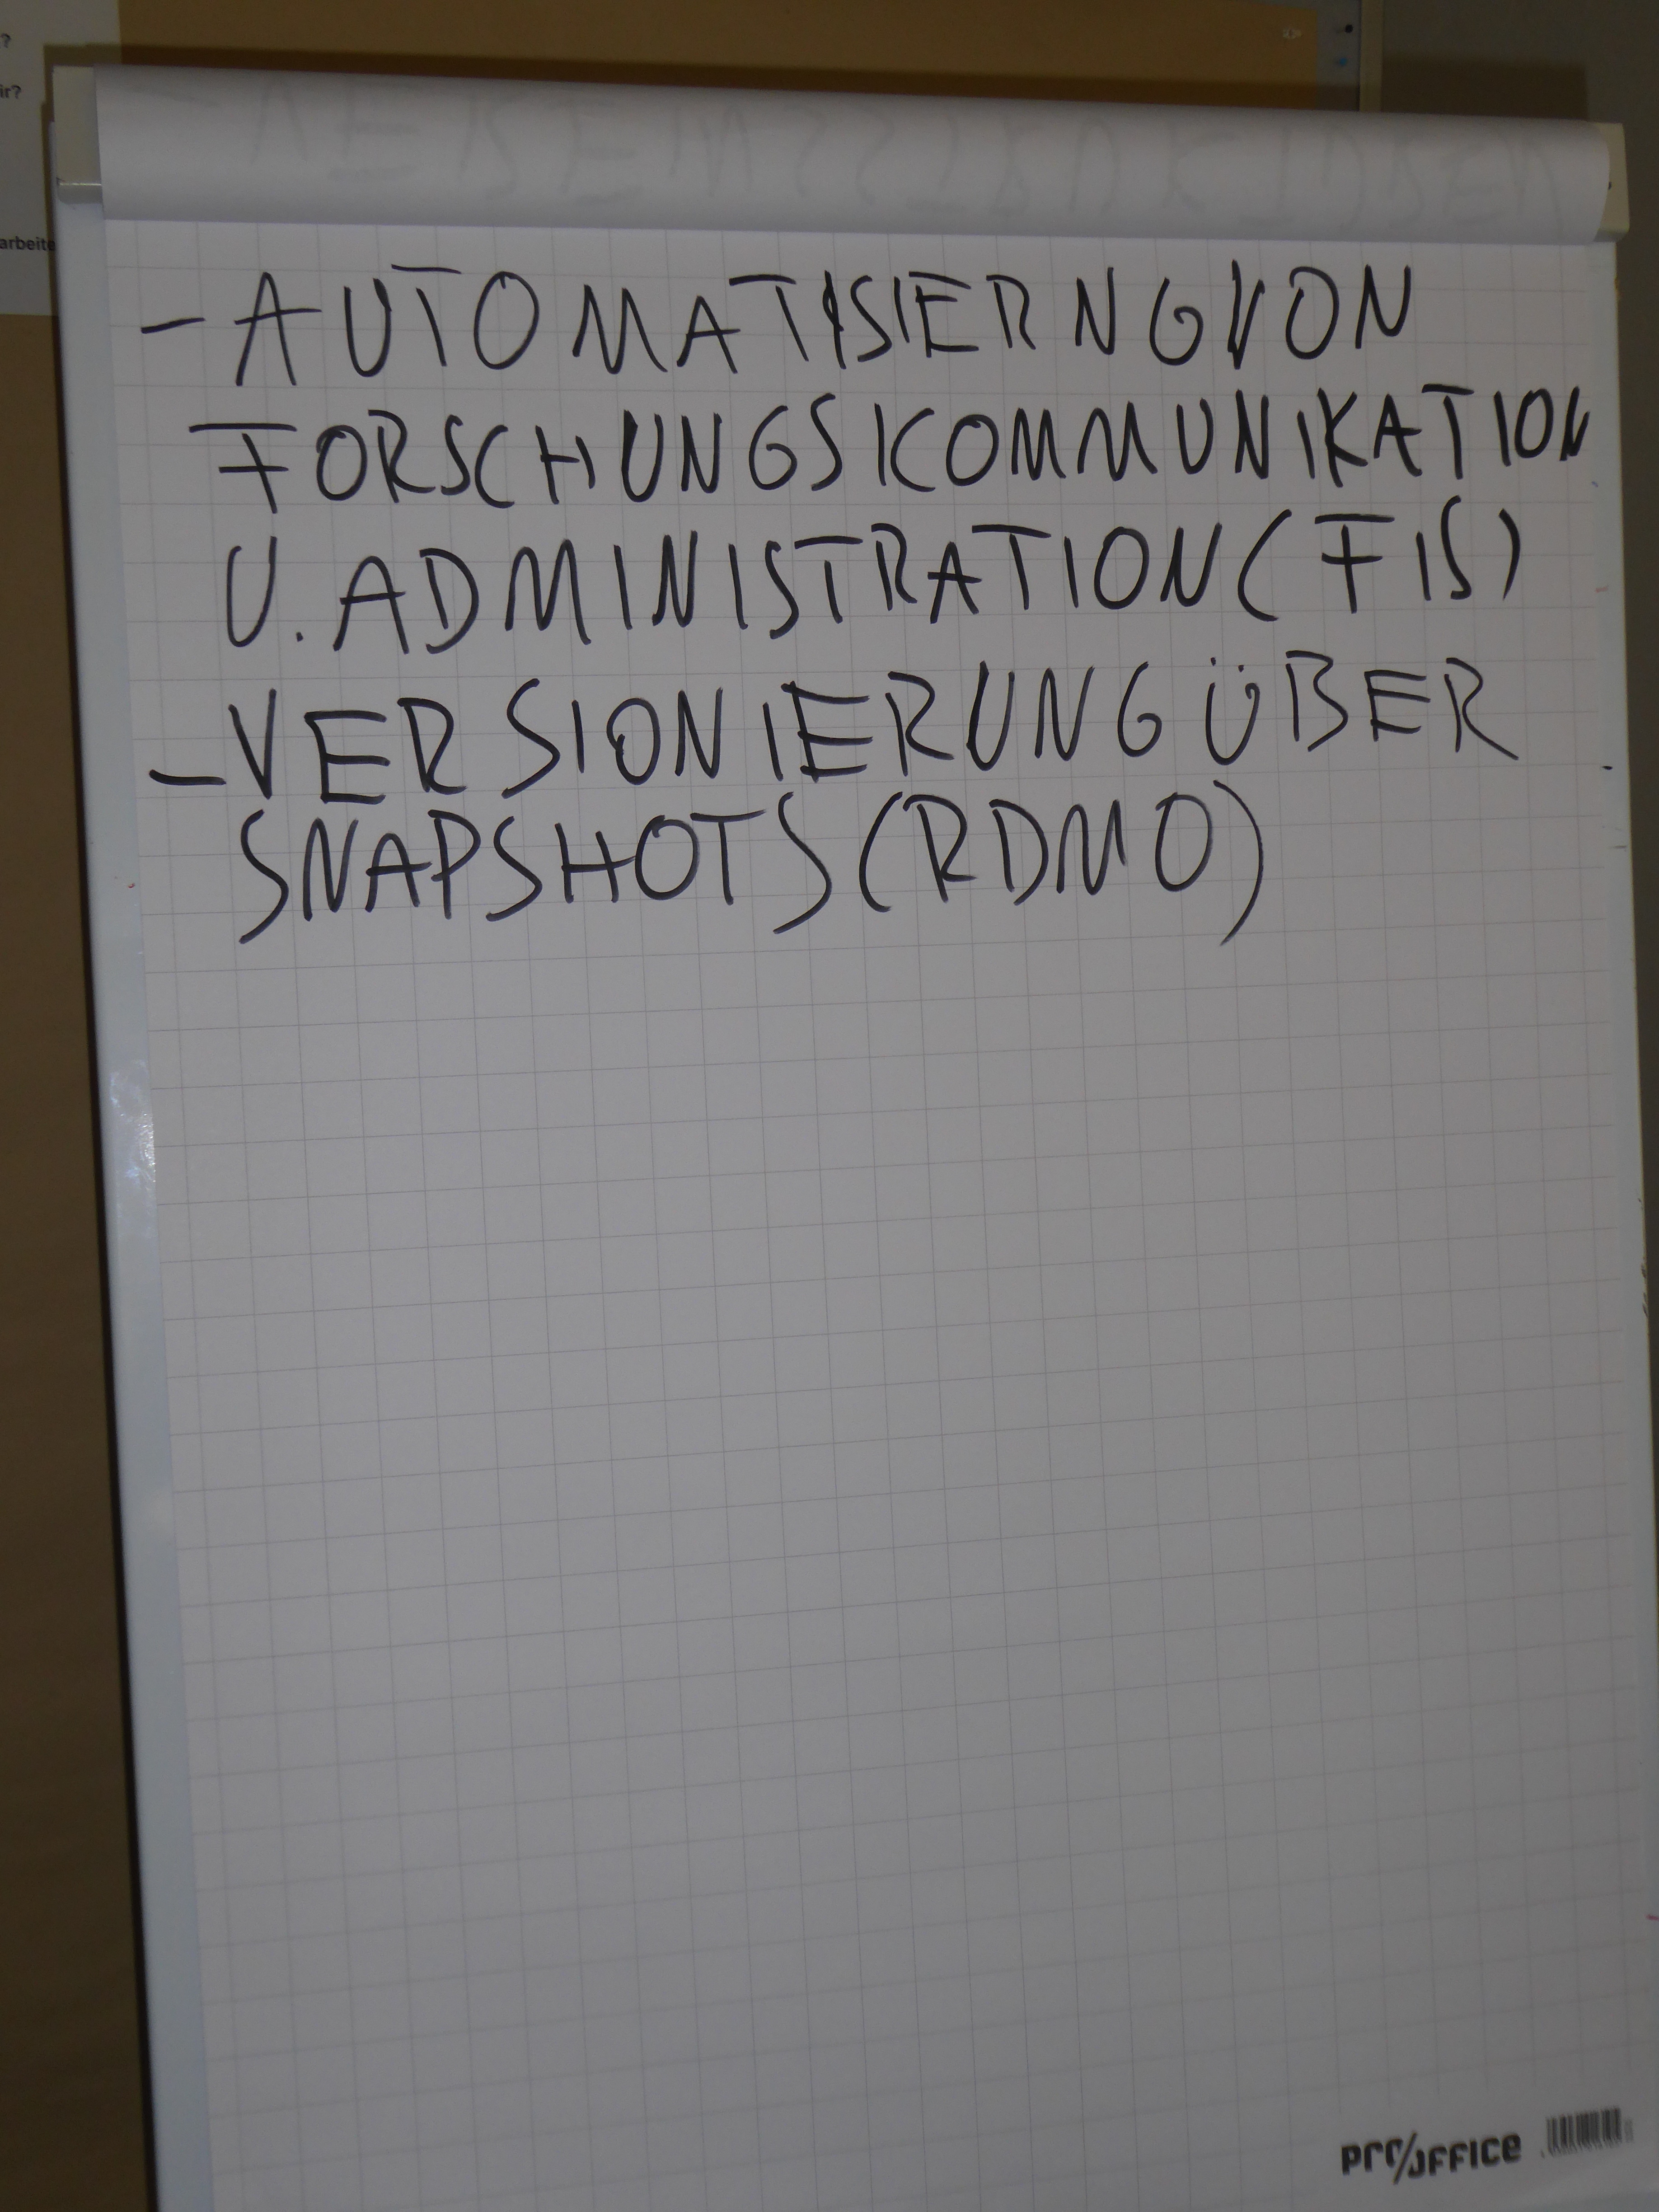 ?
ir?
arbeite
- AUTOMATISIERNG VON
FORSCHUNGSKOMMUNIKATION
U. ADMINISTRATION (FIS)
- VERSIONIERUNG ÜBER
SNAPSHOTS (RDMO)
pro/office